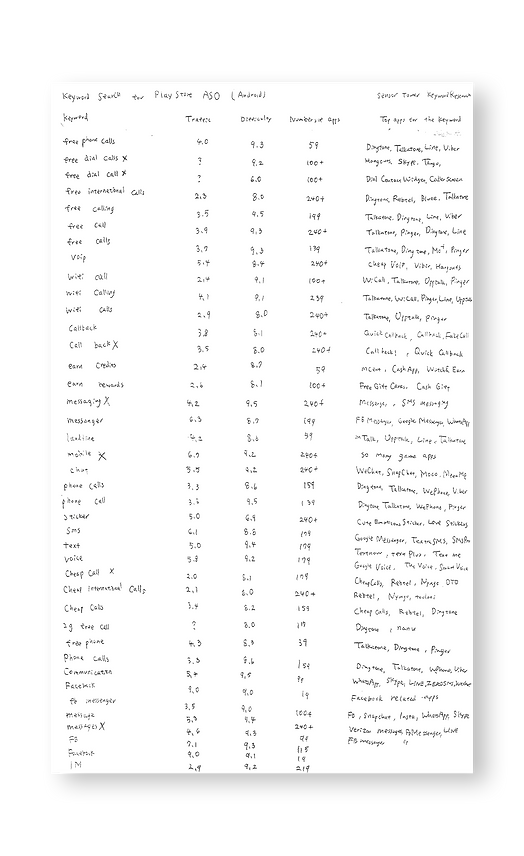 Keyword Search for Play Store ASO (Android) Sensor Tower Keyword Research
Keyword Traffic Difficulty Number in apps Top apps for the keyword
free phone calls 4.0 9.3 59 Dingtone, Talkatone, Line, Viber
free dial calls X ? 9.2 100+ Hangouts, Skype, Tango,
free dial call X ? 6.0 100+ Dial Custom Widget, Caller Screen
free international calls 2.3 8.0 240+ Dingtone, Rebtel, Talkatone
free calling 3.5 9.5 199 Talkatone, Dingtone, Line, Viber
free call 3.9 9.3 240+ Talkatone, Pinger, Dingtone, Line
free calls 3.7 9.3 139 Talkatone, Dingtone, Pinger
Voip 5.4 8.4 240+ Cheap VoIP, Viber, Hangouts
wifi call 2.4 9.1 100+ WiCall, Talkatone, Upptalk, Pinger
wifi Calling 4.1 9.1 239 Talkatone, WiCall, Pinger, Line, Upptalk
wifi calls 2.9 8.0 240+ Talkatone, Upptalk, Pinger
Callback 3.8 8.1 240+ Quick Callback, Callback, FakeCall
Call back X 3.5 8.0 240+ Call back!, Quick Callback
earn Credits 2.4 8.7 59 mCent, CashApp, Watch & Earn
earn rewards 2.6 8.1 100+ Free Gift Cards, Cash Gift
messaging X 4.2 9.5 240+ Messenger, SMS messaging
messenger 6.3 8.7 199 FB Messenger, Google Messenger, WhatsApp
landline 4.2 8.6 59 mTalk, Upptalk, Line, Talkatone
mobile X 6.7 9.2 240+ so many game apps
chat 5.5 9.2 240+ WeChat, SnapChat, Moco, MeetMe
phone calls 3.3 8.6 159 Dingtone, Talkatone, WePhone, Viber
phone call 3.6 9.5 139 Dingtone, Talkatone, WePhone, Pinger
sticker 5.0 6.9 240+ Cute Emoticons Sticker, Love Stickers
Sms 6.1 8.8 179 Google Messenger, TextraSMS,
text 5.0 9.4 179 Textnow, text Plus, Text me
voice 5.8 9.2 179 Google Voice, The Voice, Smart Voice
Cheap Call X 2.0 8.1 179 CheapCalls, Rebtel, Nymgo
Cheap international Calls 2.7 8.0 240+ Rebtel, Nymgo,
Cheap Calls 3.4 8.2 159 Cheap calls, Rebtel, Dingtone
2g free call ? 8.0 Dingtone, nanu
free phone 4.3 8.3 39 Talkatone, Dingtone, Pinger
Phone Calls 3.3 8.6 159 Dingtone, Talkatone, WePhone, Viber
Communication 5.4 9.5 99 WhatsApp, Skype, LINE,
Facebook 9.0 9.0 19 Facebook related apps
fb messenger 3.5 9.0
message 5.3 9.4 100+ FB, Snapchat, Insta, WhatsApp, Skype
messages X 4.6 9.3 240+ Verizon messages, FB Messenger,
FB 7.1 9.3 99 FB messenger "
Facebook 9.0 9.1 115
IM 2.9 9.2 219